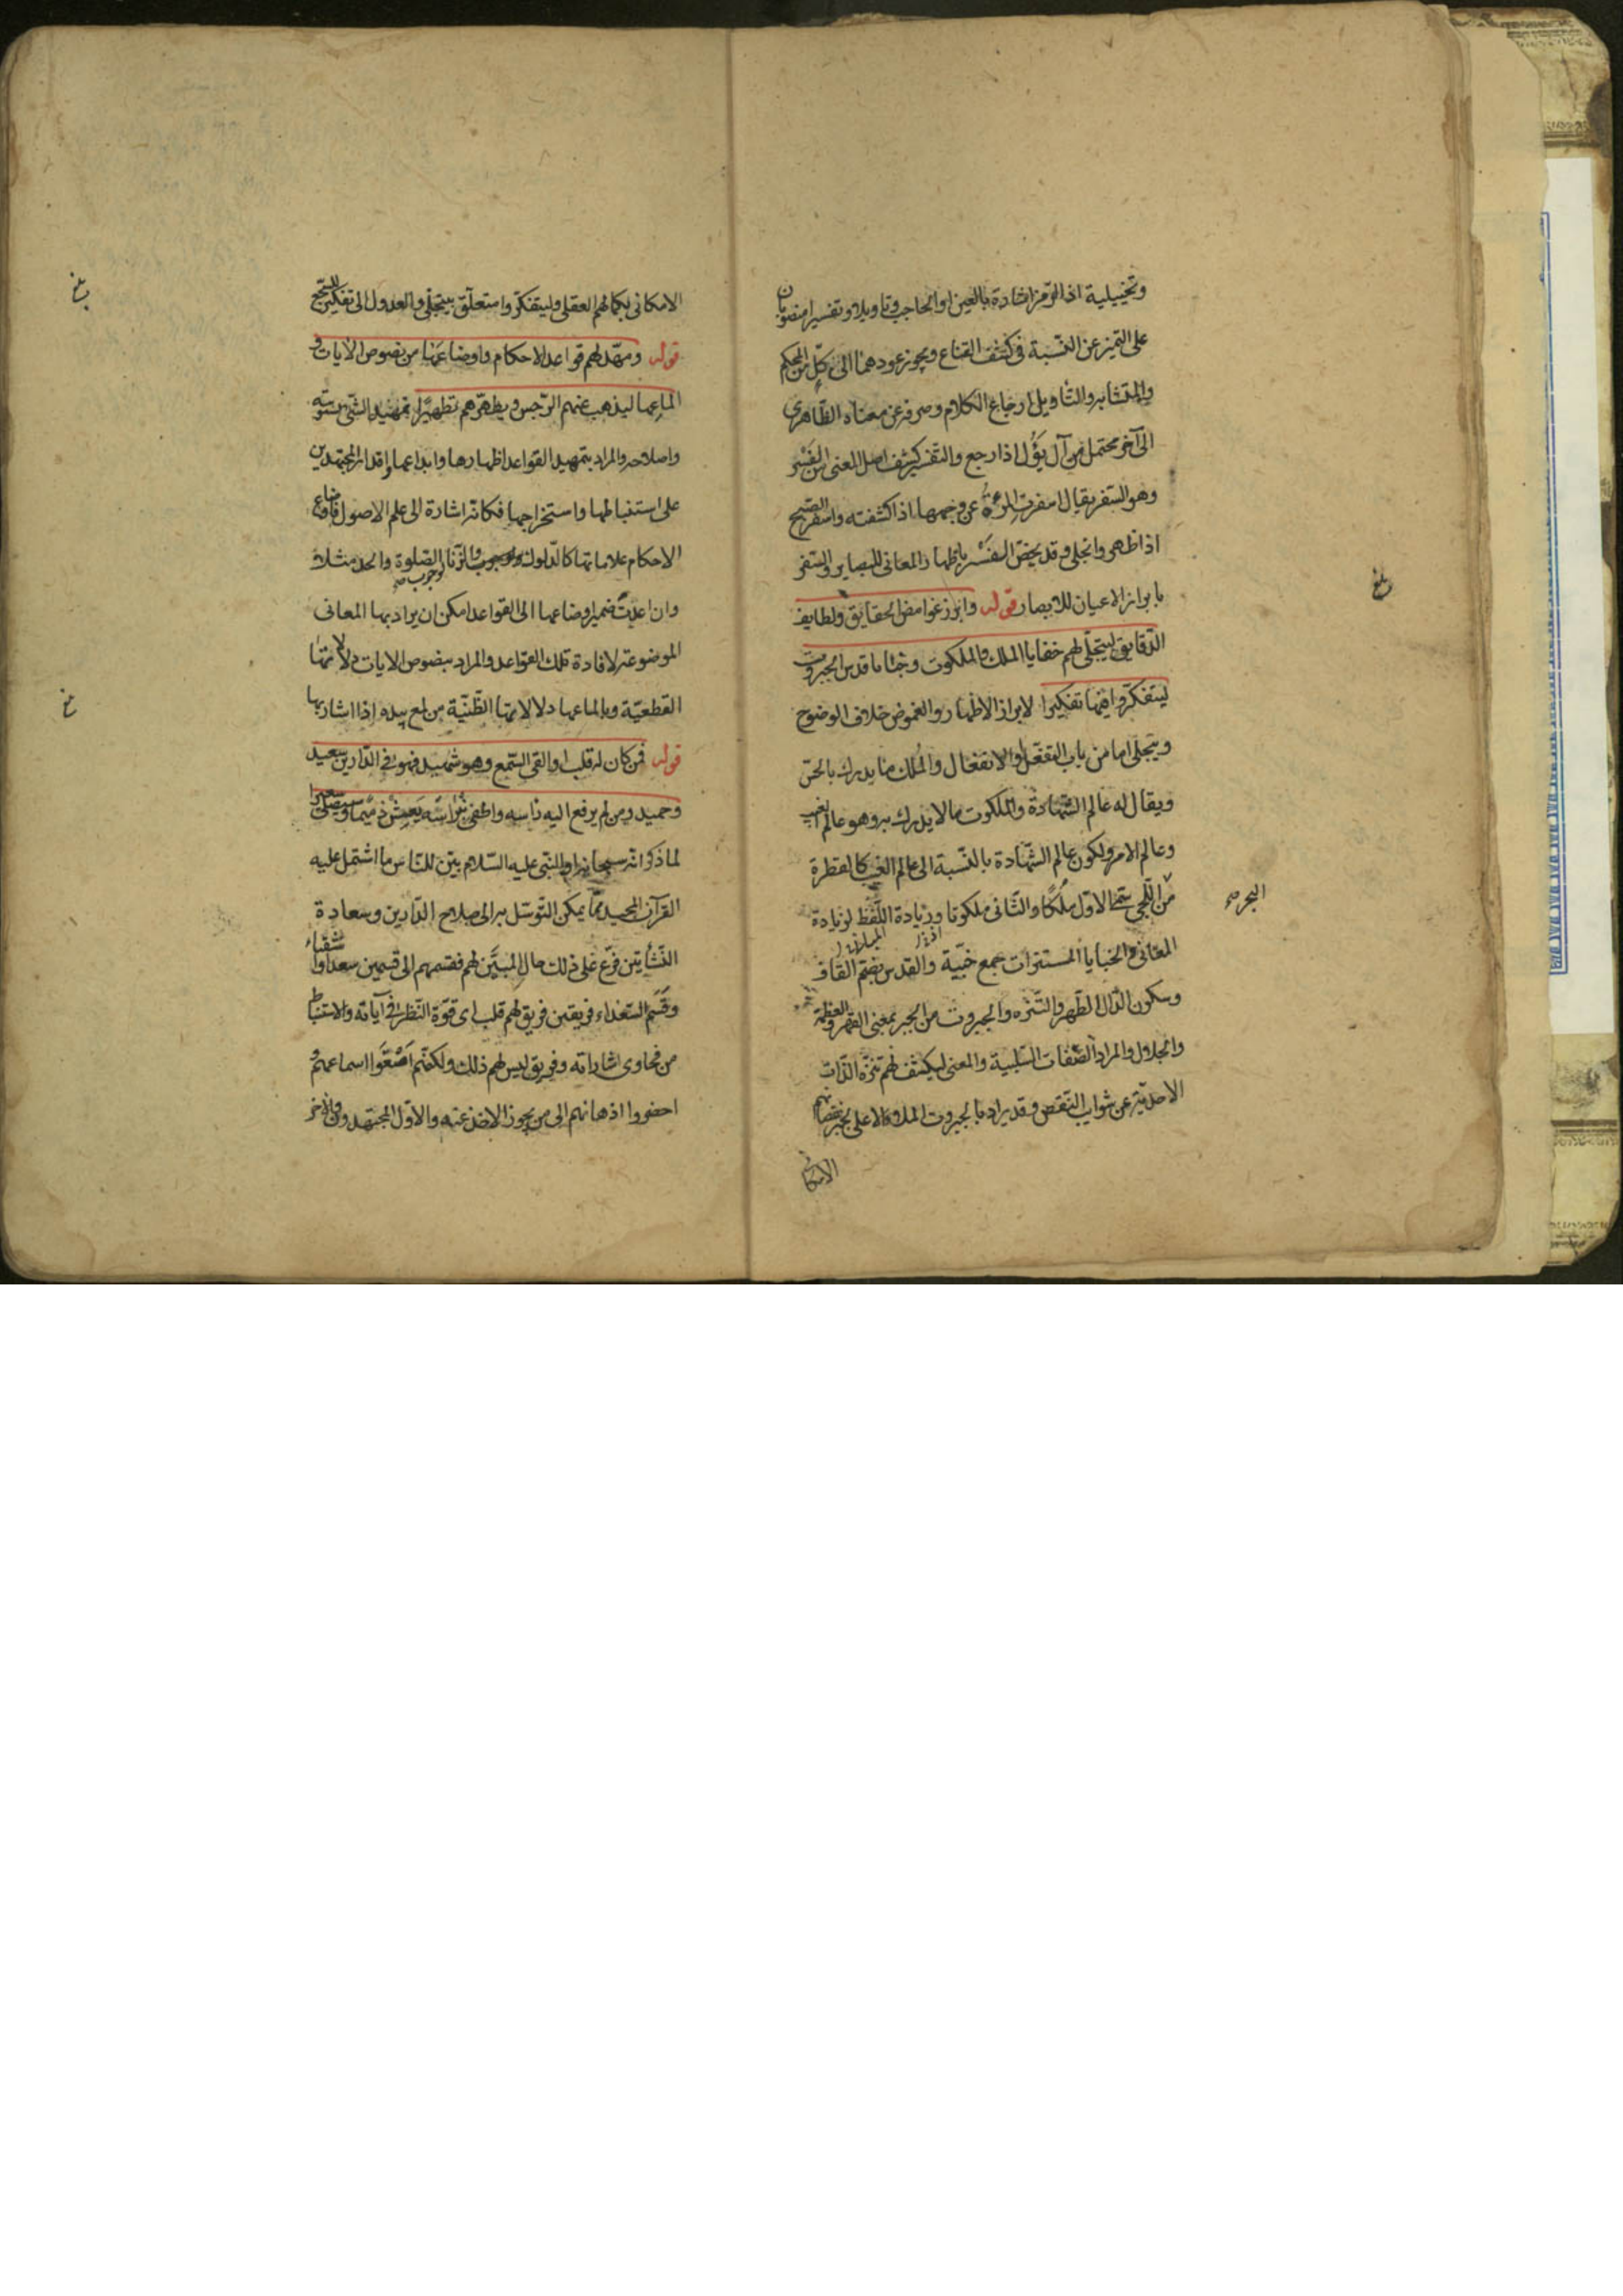 وتخييلية اذ الرمز اشارة بالعين او الحاجب وتاويلا وتفسيرا منصوبان
على التميز عن النسبة في كشف القناع ويجوز عودهما الى كل من المحكم
والمتشابه والتأويل ارجاع الكلام وصرفه عن معناه الظاهري
الى آخر محتمل من آل يؤل اذا رجع والتفسير كشف اصل المعنى من الفسر
وهو السفر يقال اسفرت المرءة عن وجهها اذا كشفته واسفر الصبح
اذا ظهر وانجلى وقد يخص الفسر باظهار المعانى للبصاير والسفر
بابراز الاعيان للابصار قوله وابرز غوامض الحقايق ولطايف
الدقايق ليتجلى لهم خفايا الملك والملكوت وخبايا قدس الجبروت
ليتفكروا فيها تفكيرا الابراز الاظهار والغموض خلاف الوضوح
ويتجلى اما من باب التفعل او الانفعال والملك ما يدرك بالحس
ويقال له عالم الشهادة والملكوت ما لا يدرك به وهو عالم الغيب
وعالم الامر ولكون عالم الشهادة بالنسبة الى عالم الغيب كالقطرة
من اللجى سمى الاول ملكا والثانى ملكوتا وزيادة اللفظ لزيادة
البحر صح
المعانى والخبايا المستترات جمع خبية والقدس بضم القاف
وسكون الدال الطهر والتنزه والجبروت من الجبر بمعنى القهر والعظمة
والجلال والمراد الصفات السلبية والمعنى ليكشف لهم تنزه الذات
الاحدية عن شوايب النقص وقد يراد بالجبروت الملاء الاعلى
الامكا
بلغ
الامكانى بكمالهم العقلى وليتفكروا متعلق بيتجلى والعدول الى تفكيرا للسجع
قوله ومهد لهم قواعد الاحكام واوضاعها من نصوص الايات و
الماعها ليذهب عنهم الرجس ويطهرهم تطهيرا تمهيد الشئ تسويته
واصلاحه والمراد بتمهيد القواعد اظهارها وابداعها واقدار المجتهدين
على استنباطها واستخراجها فكانه اشارة الى علم الاصول واوضاع
الاحكام علاماتها كالدلوك والزنا لوجوب الصلوة والحد مثلا
وان اعيدت ضمير اوضاعها الى القواعد امكن ان يراد بها المعانى
الموضوعة لافادة تلك القواعد والمراد بنصوص الايات دلالاتها
القطعية وبالماعها دلالاتها الظنية من لمع بيده اذا اشار بها
قوله فمن كان له قلب او القى السمع وهو شهيد فهو فى الدارين سعيد
وحميد ومن لم يرفع اليه راسه واطفى نبراسه يعش ذميما وسيصلى سعيرا
لما ذكر انه سبحانه او النبى عليه السلام بين للناس ما اشتمل عليه
القرآن المجيد مما يمكن التوسل به الى صلاح الدارين وسعادة
النشأتين فرع على ذلك حال المبين لهم فقسمهم الى قسمين سعداء واشقياء
وقسم السعداء فريقين فريق لهم قلب اى قوة النظر فى آياته والاستنباط
من فحاوى اشاراته وفريق ليس لهم ذلك ولكنهم اصغوا اسماعهم و
احضروا اذهانهم الى من يجوز الاخذ عنه والاول المجتهدون والاخر
بلغ